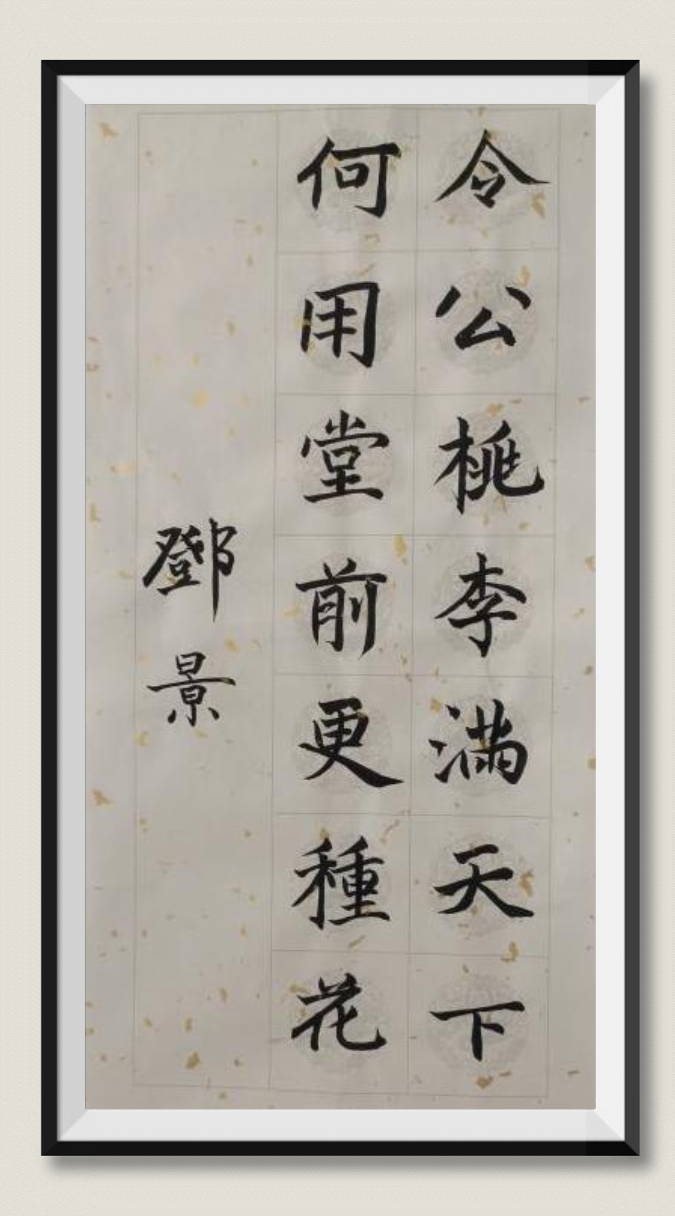 令公桃李滿天下
何用堂前更種花
鄧景